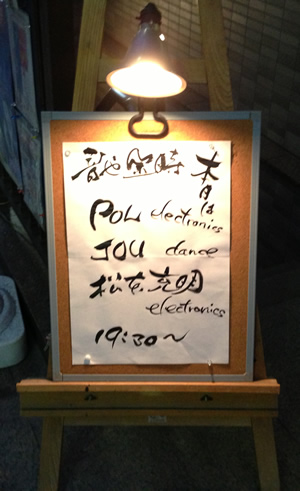 本日は
音や金時
POU electronics
JOU dance
松本充明
electronics
19:30〜